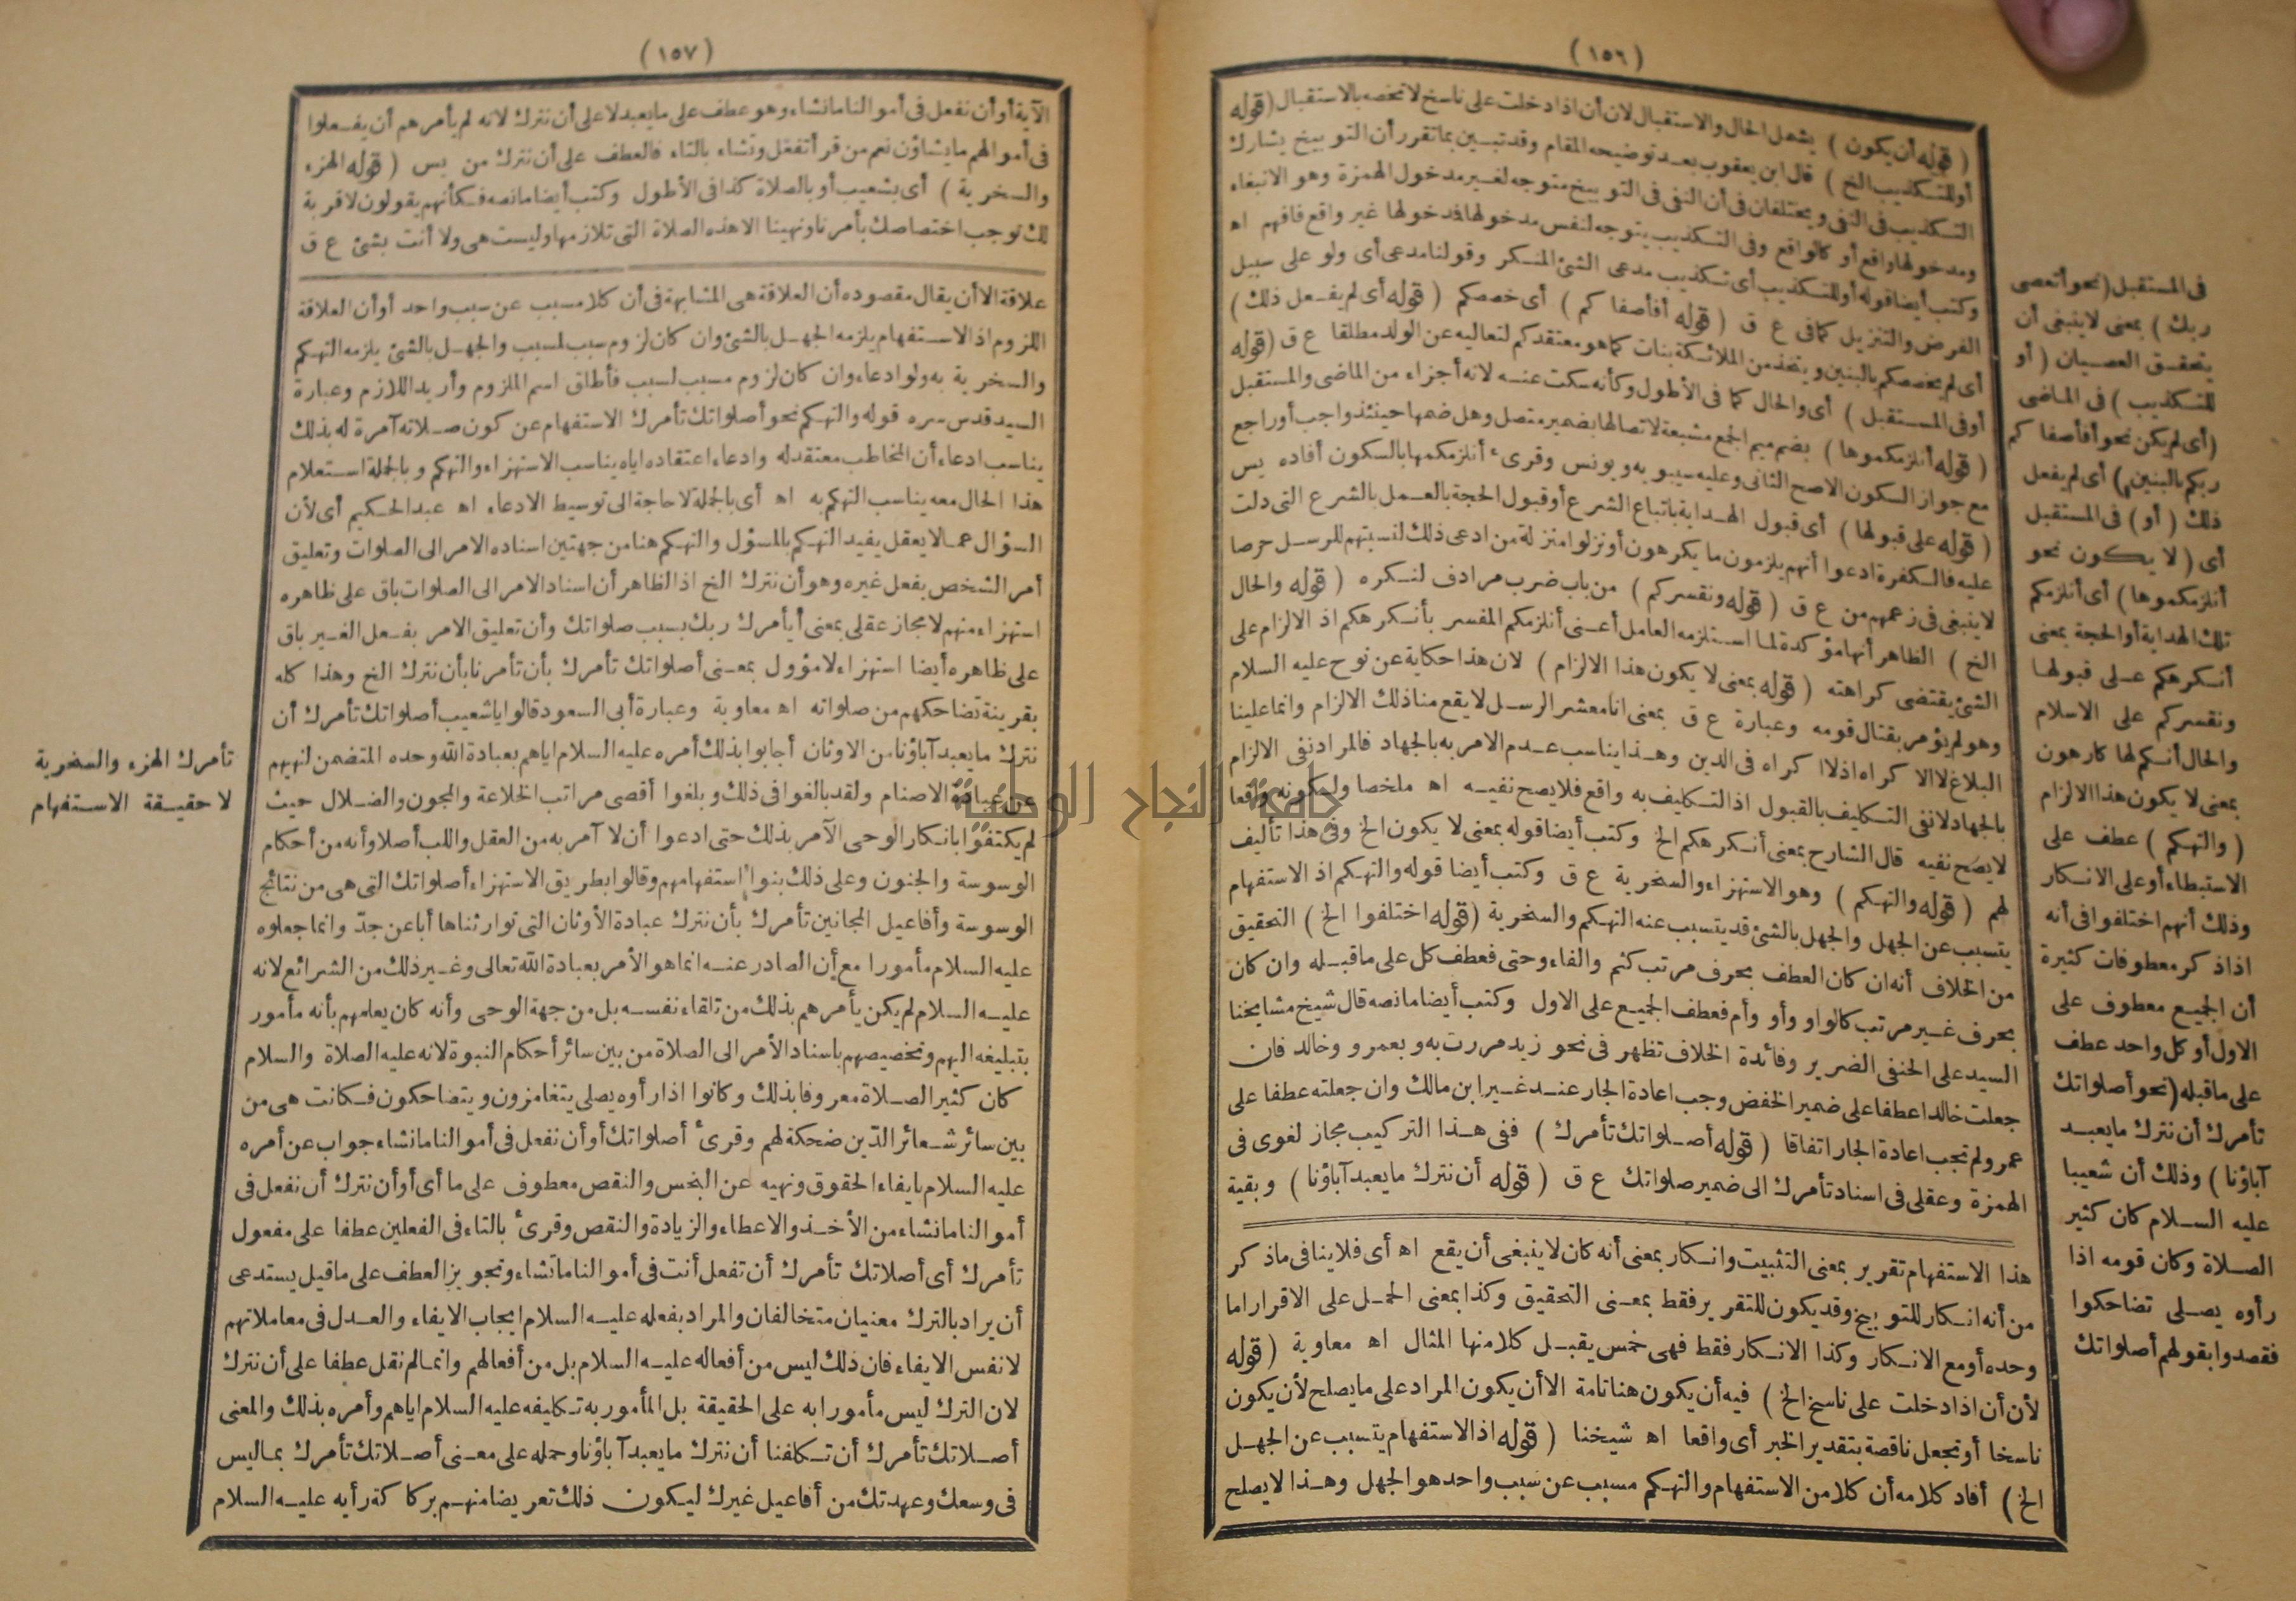 (١٥٦)
(قوله أن يكون) يشمل الحال والاستقبال لان أن اذا دخلت على ناسخ لا تخصه بالاستقبال (قوله
أو للتكذيب الخ) قال ابن يعقوب بعد توضيحه المقام وقد تبين بما تقرر أن التوبيخ يشارك
التكذيب فى النفى ويختلفان فى أن النفى فى التوبيخ متوجه لغير مدخول الهمزة وهو الانبغاء
ومدخولها واقع أو كالواقع وفى التكذيب يتوجه لنفس مدخولها فدخولها غير واقع فافهم اه
وكتب أيضا قوله أو للتكذيب أى تكذيب مدعى الشئ المنكر وقولنا مدعى أى ولو على سبيل
الفرض والتنزيل كما فى ع ق (قوله أفأصفاكم) أى خصصكم (قوله أى لم يفعل ذلك)
أى لم يخصكم بالبنين ويتخذ من الملائكة بنات كما هو معتقدكم لتعاليه عن الولد مطلقا ع ق (قوله
أو فى المستقبل) أى والحال كما فى الأطول وكأنه سكت عنه لانه أجزاء من الماضى والمستقبل
(قوله أنلزمكموها) بضم ميم الجمع مشبعة لاتصالها بضمير متصل وهل ضمها حينئذ واجب أو راجع
مع جواز السكون الاصح الثانى وعليه سيبويه ويونس وقرىء أنلزمكمها بالسكون أفاده يس
(قوله على قبولها) أى قبول الهداية باتباع الشرع أو قبول الحجة بالعمل بالشرع التى دلت
عليه فالكفرة ادعوا أنهم يلزمون ما يكرهون أو نزلوا منزلة من ادعى ذلك لنسبتهم للرسل حرصا
لا ينبغى فى زعمهم من ع ق (قوله ونقسركم) من باب ضرب مرادف لنكره (قوله والحال
الخ) الظاهر أنها مؤكدة لما استلزمه العامل أعنى أنلزمكم المفسر بأنكرهكم اذ الالزام على
الشئ يقتضى كراهته (قوله بمعنى لا يكون هذا الالزام) لان هذا حكاية عن نوح عليه السلام
وهو لم يؤمر بقتال قومه وعبارة ع ق بمعنى انا معشر الرسل لا يقع منا ذلك الالزام وانما علينا
البلاغ لا الاكراه اذ لا اكراه فى الدين وهذا يناسب عدم الامر به بالجهاد فالمراد نفى الالزام
بالجهاد لا نفى التكليف بالقبول اذ التكليف به واقع فلا يصح نفيه اه ملخصا ولكونه واقعا
لا يصح نفيه قال الشارح بمعنى أنكرهكم الخ وكتب أيضا قوله بمعنى لا يكون الخ وفى هذا تأليف
لهم (قوله والتهكم) وهو الاستهزاء والسخرية ع ق وكتب أيضا قوله والتهكم اذ الاستفهام
يتسبب عن الجهل والجهل بالشئ قد يتسبب عنه التهكم والسخرية (قوله اختلفوا الخ) التحقيق
من الخلاف أنه ان كان العطف بحرف مرتب كثم والفاء وحتى فعطف كل على ما قبله وان كان
بحرف غير مرتب كالواو وأو وأم فعطف الجميع على الاول وكتب أيضا ما نصه قال شيخ مشايخنا
السيد على الحنفى الضرير وفائدة الخلاف تظهر فى نحو زيد مررت به وبعمرو وخالد فان
جعلت خالدا عطفا على ضمير الخفض وجب اعادة الجار عند غير ابن مالك وان جعلته عطفا على
عمرو لم تجب اعادة الجار اتفاقا (قوله أصلواتك تأمرك) ففى هذا التركيب مجاز لغوى فى
الهمزة وعقلى فى اسناد تأمرك الى ضمير صلواتك ع ق (قوله أن نترك ما يعبد آباؤنا) وبقية
هذا الاستفهام تقرير بمعنى التثبيت وانكار بمعنى أنه كان لا ينبغى أن يقع اه أى فلا ينافى ما ذكر
من أنه انكار للتوبيخ وقد يكون للتقرير فقط بمعنى التحقيق وكذا بمعنى الحمل على الاقرار اما
وحده أو مع الانكار وكذا الانكار فقط فهى خمس يقبل كلا منها المثال اه معاوية (قوله
لأن أن اذا دخلت على ناسخ الخ) فيه أن يكون هنا تامة الا أن يكون المراد على ما يصلح لأن يكون
ناسخا أو تجعل ناقصة بتقدير الخبر أى واقعا اه شيخنا (قوله اذ الاستفهام يتسبب عن الجهل
الخ) أفاد كلامه أن كلا من الاستفهام والتهكم مسبب عن سبب واحد هو الجهل وهذا لا يصلح
فى المستقبل (نحو أتعصى
ربك) بمعنى لا ينبغى أن
يتحقق العصيان (أو
للتكذيب) فى الماضى
(أى لم يكن نحو أفأصفاكم
ربكم بالبنين) أى لم يفعل
ذلك (أو) فى المستقبل
أى (لا يكون نحو
أنلزمكموها) أى أنلزمكم
تلك الهداية أو الحجة بمعنى
أنكرهكم على قبولها
ونقسركم على الاسلام
والحال أنكم لها كارهون
بمعنى لا يكون هذا الالزام
(والتهكم) عطف على
الاستبطاء أو على الانكار
وذلك أنهم اختلفوا فى أنه
اذا ذكر معطوفات كثيرة
أن الجميع معطوف على
الاول أو كل واحد عطف
على ما قبله (نحو أصلواتك
تأمرك أن نترك ما يعبد
آباؤنا) وذلك أن شعيبا
عليه السلام كان كثير
الصلاة وكان قومه اذا
رأوه يصلى تضاحكوا
فقصدوا بقولهم أصلواتك
(١٥٧)
الآية أو أن نفعل فى أموالنا ما نشاء وهو عطف على ما يعبد لا على أن نترك لانه لم يأمرهم أن يفعلوا
فى أموالهم ما يشاؤن نعم من قرأ تفعل وتشاء بالتاء فالعطف على أن نترك من يس (قوله الهزء
والسخرية) أى بشعيب أو بالصلاة كذا فى الأطول وكتب أيضا ما نصه فكأنهم يقولون لا قربة
لك توجب اختصاصك بأمرنا ونهينا الا هذه الصلاة التى تلازمها وليست هى ولا أنت بشئ ع ق
علاقة الا أن يقال مقصوده أن العلاقة هى المشابهة فى أن كلا مسبب عن سبب واحد أو أن العلاقة
اللزوم اذ الاستفهام يلزمه الجهل بالشئ وان كان لزوم سبب لمسبب والجهل بالشئ يلزمه التهكم
والسخرية به ولو ادعاء وان كان لزوم مسبب لسبب فأطلق اسم الملزوم وأريد اللازم وعبارة
السيد قدس سره قوله والتهكم نحو أصلواتك تأمرك الاستفهام عن كون صلاته آمرة له بذلك
يناسب ادعاء أن المخاطب معتقد له وادعاء اعتقاده اياه يناسب الاستهزاء والتهكم وبالجملة استعلام
هذا الحال معه يناسب التهكم به اه أى بالجملة لا حاجة الى توسيط الادعاء اه عبد الحكيم أى لأن
السؤال عما لا يعقل يفيد التهكم بالمسؤل والتهكم هنا من جهتين اسناده الامر الى الصلوات وتعليق
أمر الشخص بفعل غيره وهو أن نترك الخ اذ الظاهر أن اسناد الامر الى الصلوات باق على ظاهره
استهزاء منهم لا مجاز عقلى بمعنى أيأمرك ربك بسبب صلواتك وأن تعليق الامر بفعل الغير باق
على ظاهره أيضا استهزاء لا مؤول بمعنى أصلواتك تأمرك بأن تأمرنا بأن نترك الخ وهذا كله
بقرينة تضاحكهم من صلواته اه معاوية وعبارة أبى السعود قالوا يا شعيب أصلواتك تأمرك أن
نترك ما يعبد آباؤنا من الاوثان أجابوا بذلك أمره عليه السلام اياهم بعبادة الله وحده المتضمن لنهيهم
عن عبادة الاصنام ولقد بالغوا فى ذلك وبلغوا أقصى مراتب الخلاعة والمجون والضلال حيث
لم يكتفوا بانكار الوحى الآمر بذلك حتى ادعوا أن لا آمر به من العقل واللب أصلا وأنه من أحكام
الوسوسة والجنون وعلى ذلك بنوا استفهامهم وقالوا بطريق الاستهزاء أصلواتك التى هى من نتائج
الوسوسة وأفاعيل المجانين تأمرك بأن نترك عبادة الأوثان التى توارثناها أبا عن جدّ وانما جعلوه
عليه السلام مأمورا مع أن الصادر عنه انما هو الأمر بعبادة الله تعالى وغير ذلك من الشرائع لانه
عليه السلام لم يكن يأمرهم بذلك من تلقاء نفسه بل من جهة الوحى وأنه كان يعلمهم بأنه مأمور
بتبليغه اليهم وتخصيصهم باسناد الأمر الى الصلاة من بين سائر أحكام النبوة لانه عليه الصلاة والسلام
كان كثير الصلاة معروفا بذلك وكانوا اذا رأوه يصلى يتغامزون ويتضاحكون فكانت هى من
بين سائر شعائر الدّين ضحكة لهم وقرئ أصلواتك أو أن نفعل فى أموالنا ما نشاء جواب عن أمره
عليه السلام بايفاء الحقوق ونهيه عن البخس والنقص معطوف على ما أى أو أن نترك أن نفعل فى
أموالنا ما نشاء من الأخذ والاعطاء والزيادة والنقص وقرئ بالتاء فى الفعلين عطفا على مفعول
تأمرك أى أصلاتك تأمرك أن تفعل أنت فى أموالنا ما تشاء وتجويز العطف على ما قيل يستدعى
أن يراد بالترك معنيان متخالفان والمراد بفعله عليه السلام ايجاب الايفاء والعدل فى معاملاتهم
لا نفس الايفاء فان ذلك ليس من أفعاله عليه السلام بل من أفعالهم وانما لم نقل عطفا على أن نترك
لان الترك ليس مأمورا به على الحقيقة بل المأمور به تكليفه عليه السلام اياهم وأمره بذلك والمعنى
أصلاتك تأمرك أن تكلفنا أن نترك ما يعبد آباؤنا وحمله على معنى أصلاتك تأمرك بما ليس
فى وسعك وعهدتك من أفاعيل غيرك ليكون ذلك تعريضا منهم بركاكة رأيه عليه السلام
تأمرك الهزء والسخرية
لا حقيقة الاستفهام
جامعة النجاح الوطنية